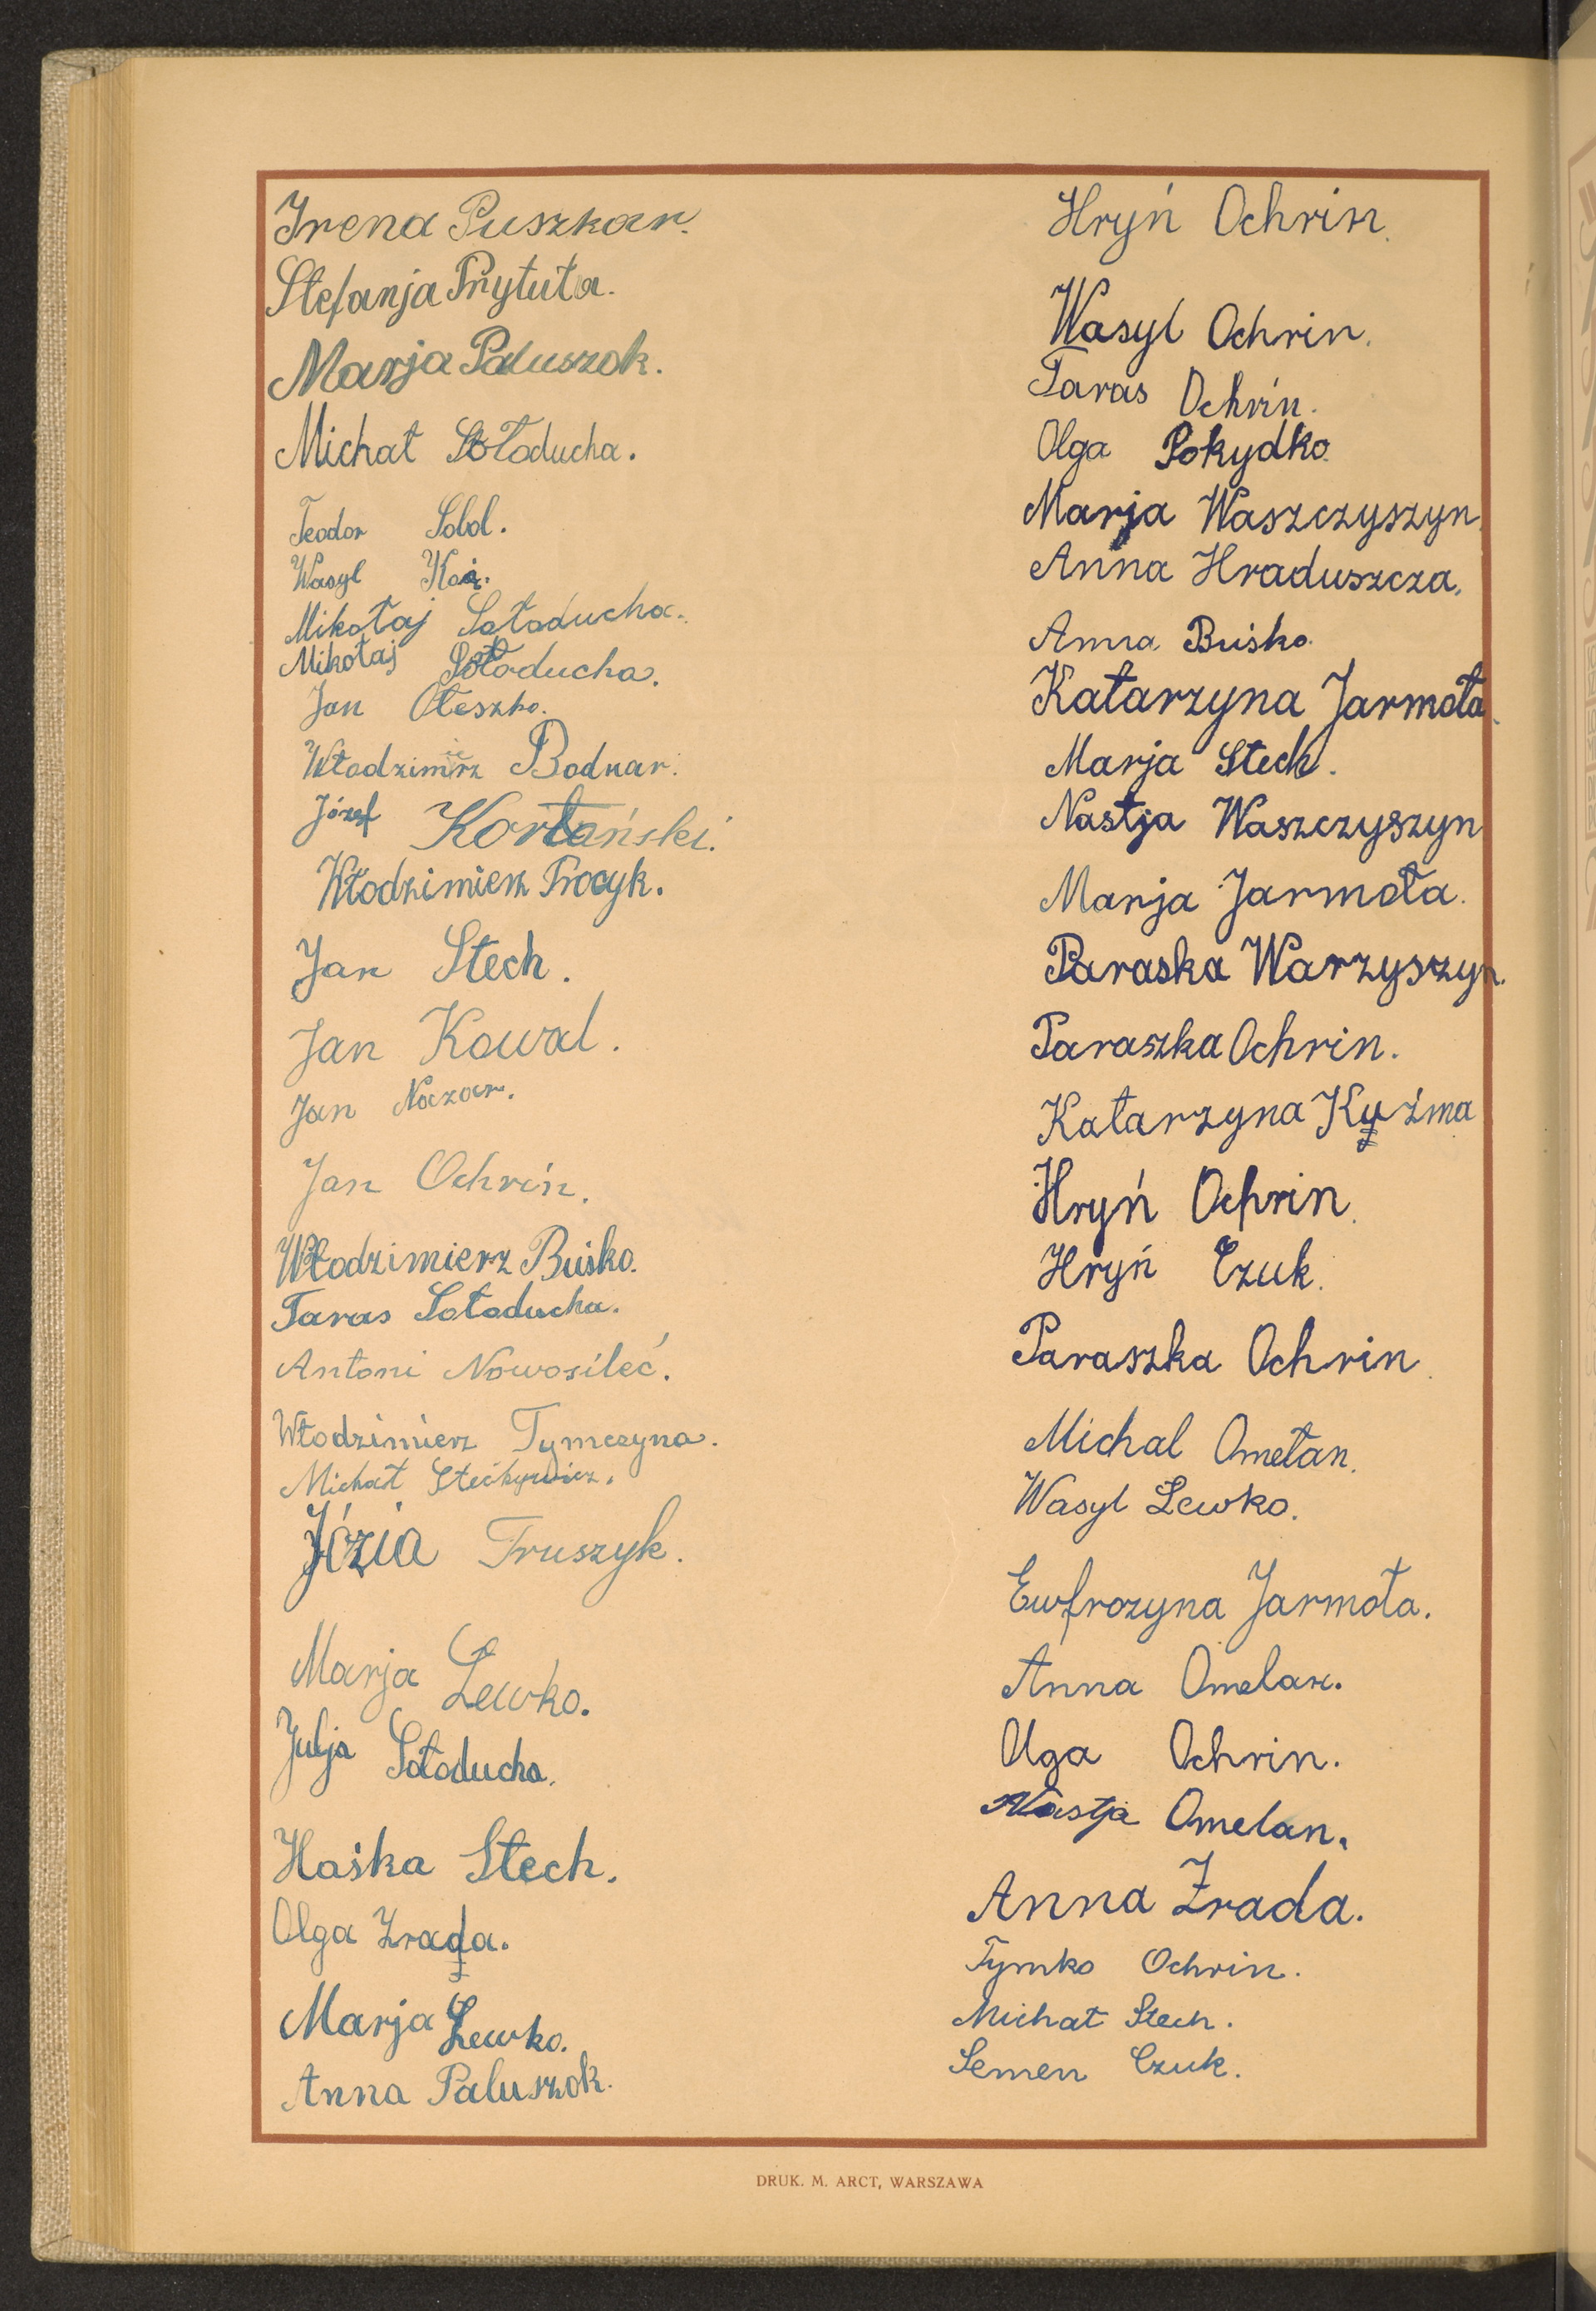 Irena Puszkar.
Stefanja Prytuła.
Marja Paluszok.
Michał Sołoducha.
Teodor Sobol.
Wasyl
Mikołaj Sołoducha.
Mikołaj Sołoducha.
Jan Oleszko.
Włodzimierz Bodnar.
Józef Kortański.
Włodzimierz Procyk.
Jan Stech.
Jan Kowal.
Jan Nazar.
Jan Ochrin.
Włodzimierz Buśko.
Taras Sołoducha.
Antoni Nowosileć.
Włodzimierz Tymczyna.
Michał Stećkywicz.
Józia Truszyk.
Marja Lewko.
Julja Sołoducha.
Haśka Stech.
Olga Zrada.
Marja Lewko.
Anna Paluszok.
Hryń Ochrin.
Wasyl Ochrin.
Taras Ochrin.
Olga Pokydko.
Marja Waszczyszyn.
Anna Hraduszcza.
Anna Buśko.
Katarzyna Jarmoła.
Marja Stech.
Nastja Waszczyszyn
Marja Jarmoła.
Paraska Warzyszyn.
Paraszka Ochrin.
Katarzyna Kyźma
Hryń Ochrin.
Hryń Czuk.
Paraszka Ochrin.
Michal Omelan.
Wasyl Lewko.
Ewfrozyna Jarmoła.
Anna Omelan.
Olga Ochrin.
Nastja Omelan.
Anna Zrada.
Tymko Ochrin.
Michał Stech.
Semen Czuk.
DRUK. M. ARCT, WARSZAWA